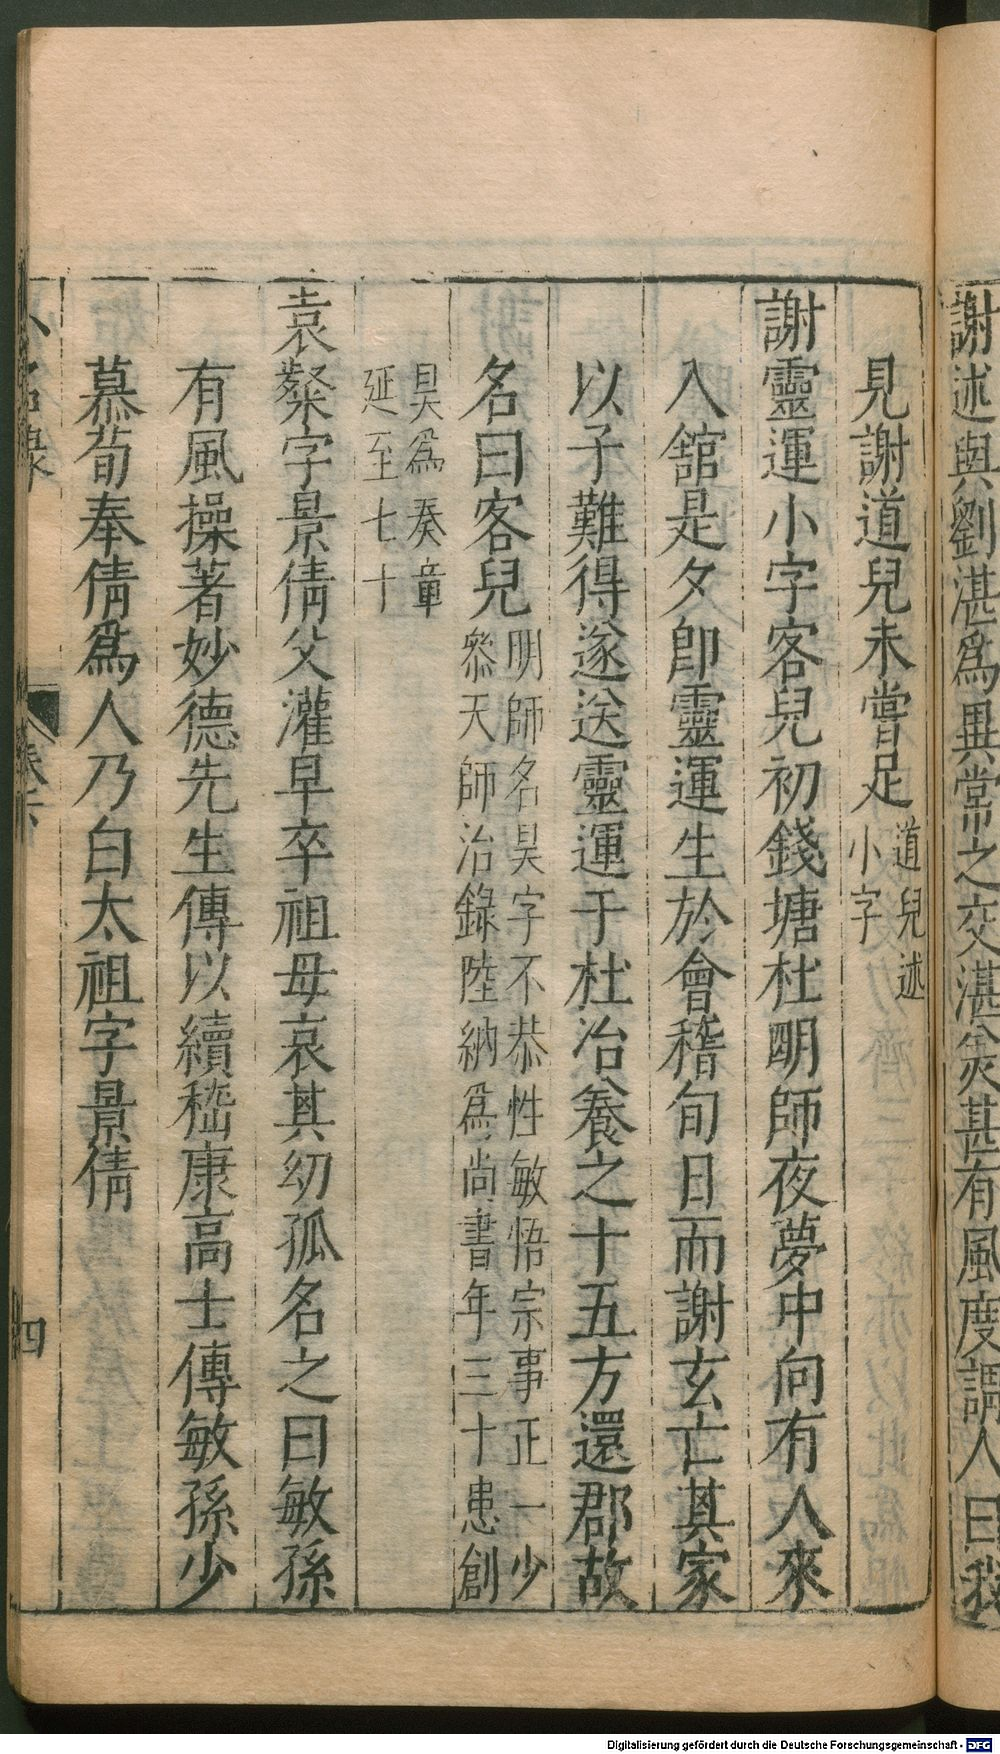 謝述與劉湛爲異常之交湛𠆤甚有風度謂人曰我
見謝道兒未嘗足道兒述
小字
謝靈運小字客兒初錢塘杜明師夜夢中向有人來
入舘是夕卽靈運生於會稽旬日而謝玄亡其家
以子難得遂送靈運于杜治養之十五方還郡故
名曰客兒明師名昊字不恭性敏悟宗事正一少
叅天師治錄陸納爲尚書年三十患創
昊爲奏章
延至七十
袁粲字景倩父濯早卒祖母哀其幼孤名之曰敏孫
有風操著妙德先生傳以續嵇康高士傳敏孫少
慕荀奉倩爲人乃白太祖字景倩
小名錄 卷下 四
Digitalisierung gefördert durch die Deutsche Forschungsgemeinschaft - DFG